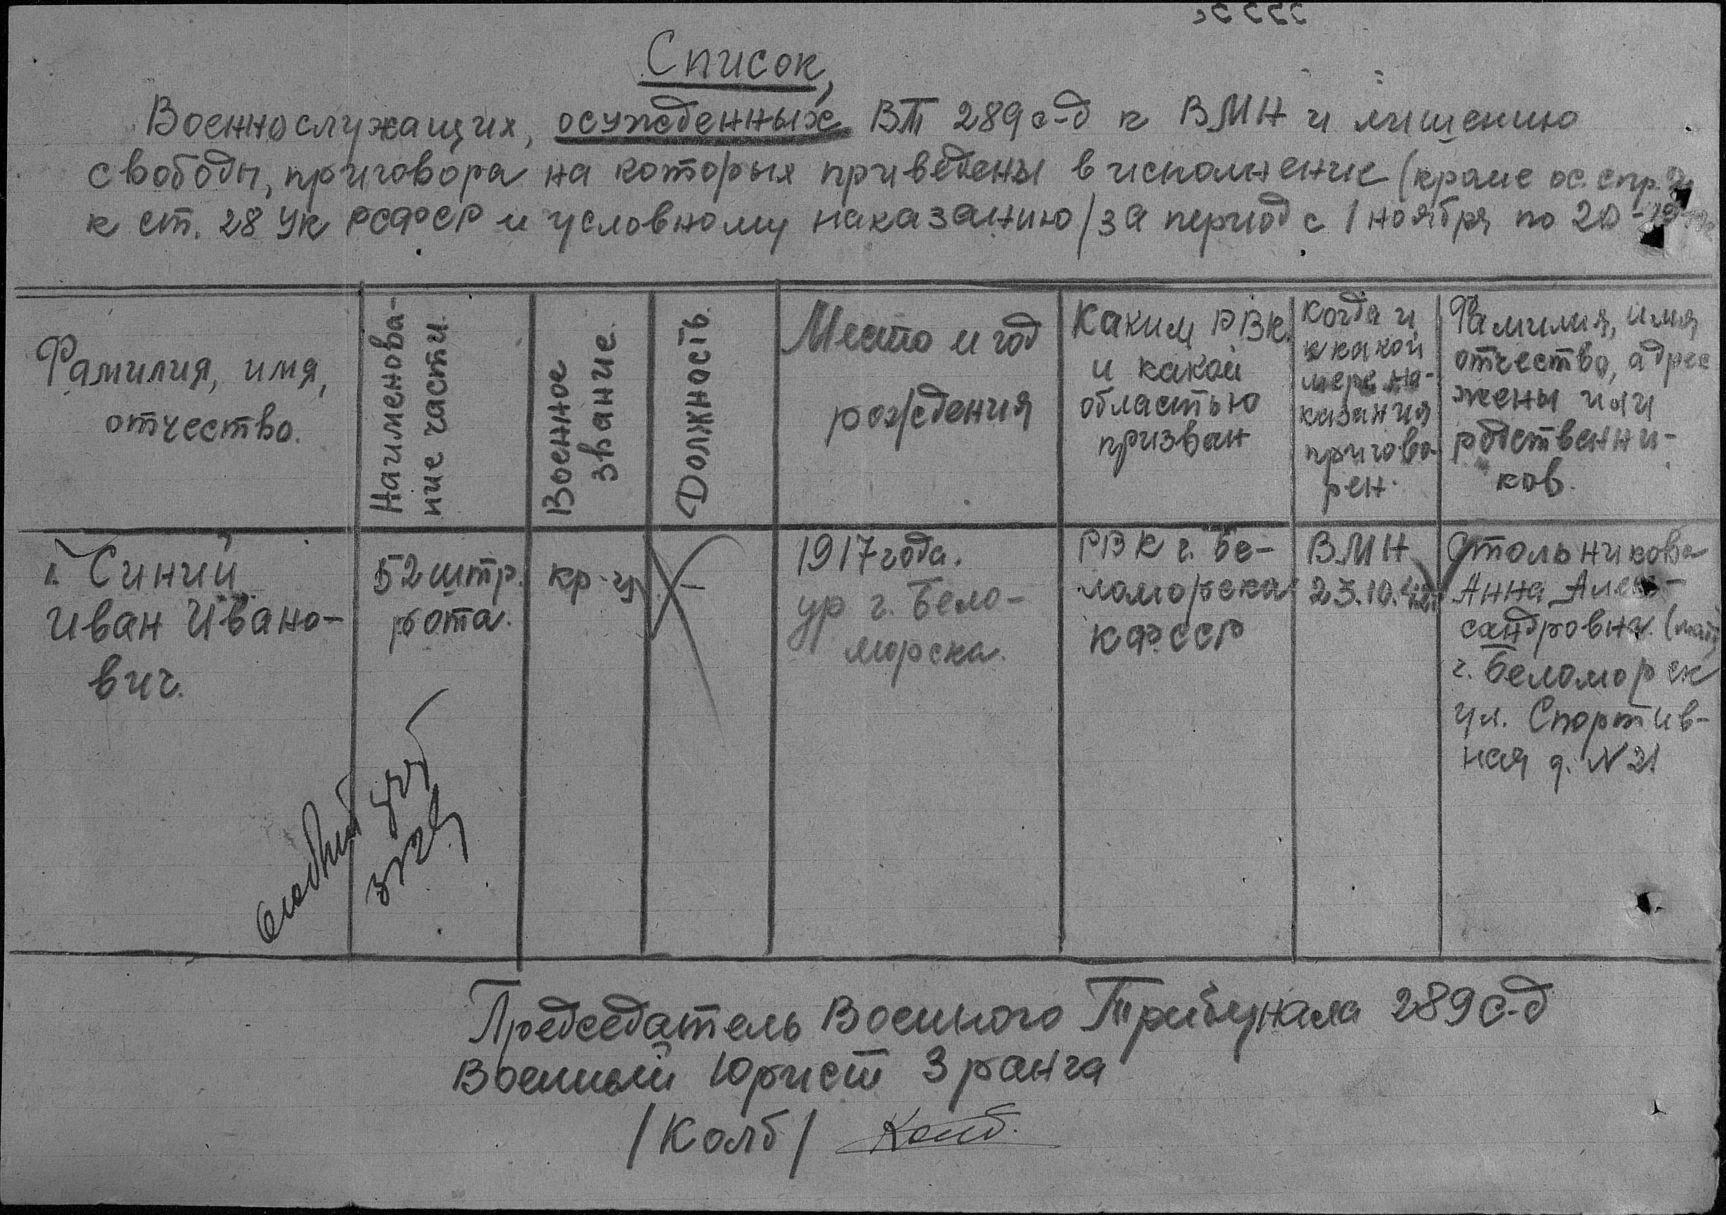 Список,
Военнослужащих, осужденных ВТ 289 с-д к ВМН и лишению
свободы, приговора на которых приведены в исполнение (кроме ос.
к ст. 28 УК РСФСР и условному наказанию/за период с 1 ноября по 20
Фамилия, имя,
отчество.
Наименова-
ние части.
Военное
звание.
Должность.
Место и год
рождения
Каким РВК
и какой
областью
призван
Когда и
к какой
мере на-
казания
пригово-
рен.
Фамилия, имя
отчество, адрес
жены или
родственни-
ков.
1. Синий
Иван Ивано-
вич.
52 штр.
рота.
кр-ц
1917 года.
ур г. Бело-
морска.
РВК г. Бе-
ломорска
КФССР
ВМН
23.10.42
Стольникова
Анна Алек-
сандровна (мать)
г. Беломорск
ул. Спортив-
ная д. N 21
Председатель Военного Трибунала 289 с-д
Военный Юрист 3 ранга
/Колб/ Колб.